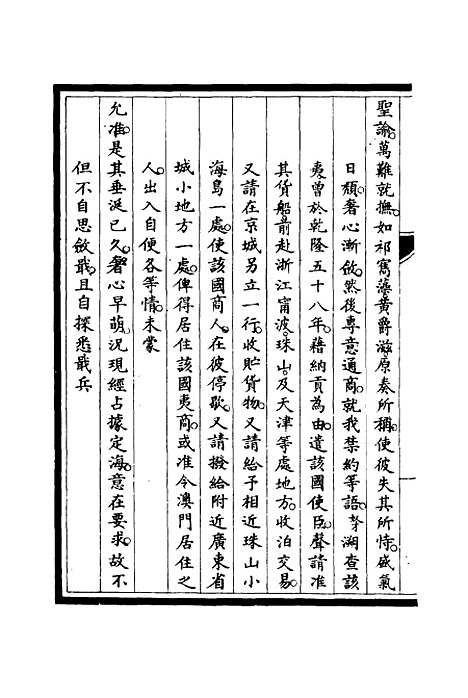 聖諭萬難就撫如祁寯藻黃爵滋原奏所稱使彼失其所恃盛氣
日頹奢心漸斂然後專意通商就我禁約等語溯查該
夷曾於乾隆五十八年藉納貢為由遣該國使臣聲請准
其貨船前赴浙江甯波珠山及天津等處地方收泊交易
又請在京城另立一行收貯貨物又請給予相近珠山小
海島一處使該國商人在彼停歇又請撥給附近廣東省
城小地方一處俾得居住該國夷商或准令澳門居住之
人出入自便各等情未蒙
允准是其垂涎已久奢心早萌況現經占據定海意在要求故不
但不自思斂戢且自探悉戢兵